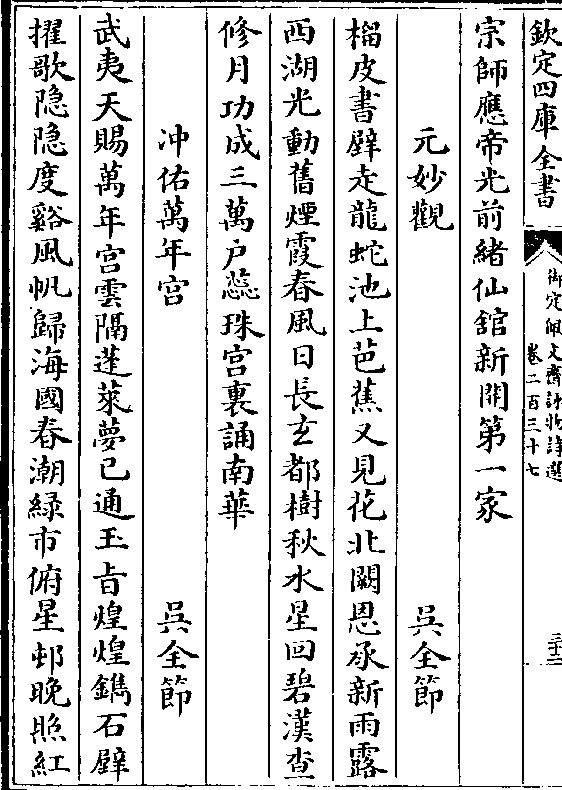 欽定四庫全書
御定佩文齋詠物詩選
卷二百三十七
三十二
宗師應帝光前緒仙舘新開第一家
元妙觀 吳全節
榴皮書壁走龍蛇池上芭蕉又見花北闕恩承新雨露
西湖光動舊煙霞春風日長玄都樹秋水星回碧漢查
修月功成三萬户蕊珠宫裏誦南華
冲佑萬年宫 吳全節
武夷天賜萬年宫雲隔蓬萊夢已通玉旨煌煌鐫石壁
擢歌隐隐度谿風帆歸海國春潮緑市俯星邨晚照紅